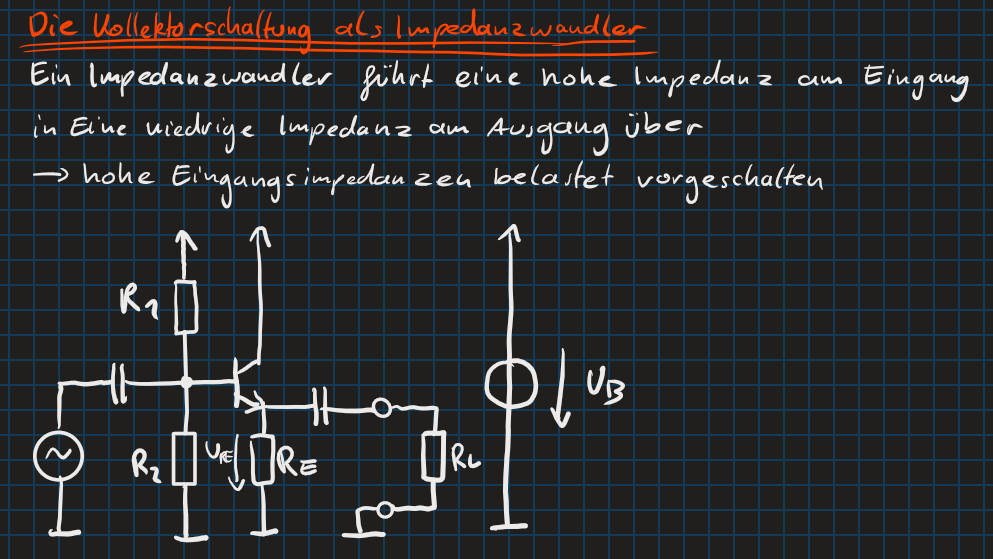 Die Kollektorschaltung als Impedanzwandler
Ein Impedanzwandler führt eine hohe Impedanz am Eingang
in Eine niedrige Impedanz am Ausgang über
→ hohe Eingangsimpedanzen belastet vorgeschalten
R1
R2
URE
RE
RL
UB